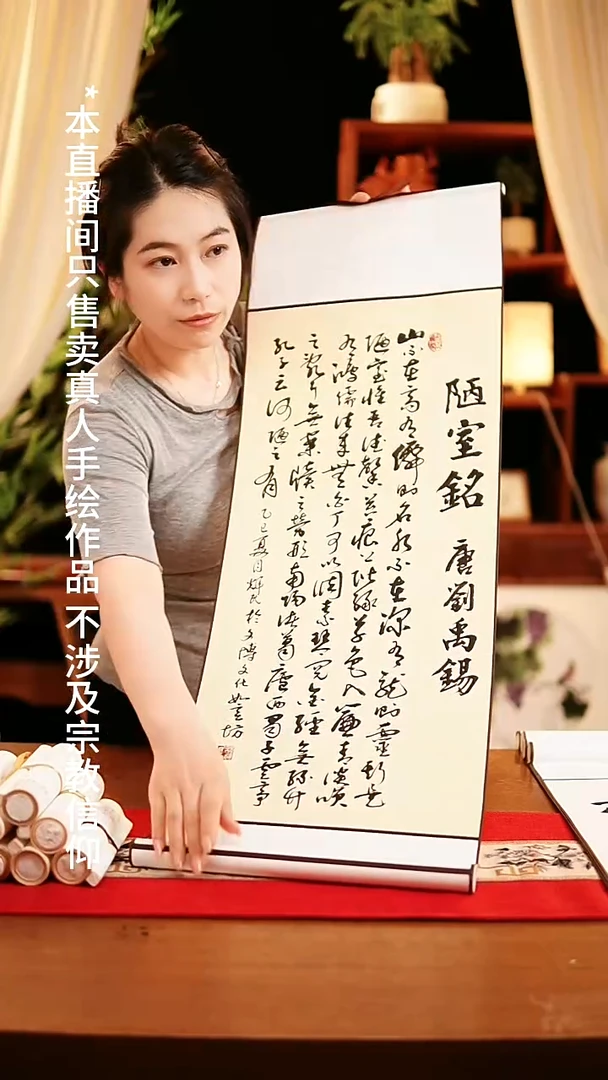 *本直播间只售卖真人手绘作品 不涉及宗教信仰
陋室銘 唐劉禹錫
山不在高有僊則名水不在深有龍則靈斯是
陋室惟吾德馨苔痕上階綠草色入簾青談笑
有鴻儒往來無白丁可以調素琴閱金經無絲竹
之亂耳無案牘之勞形南陽諸葛廬西蜀子雲亭
孔子云何陋之有 乙巳夏月 於文博文化如意坊